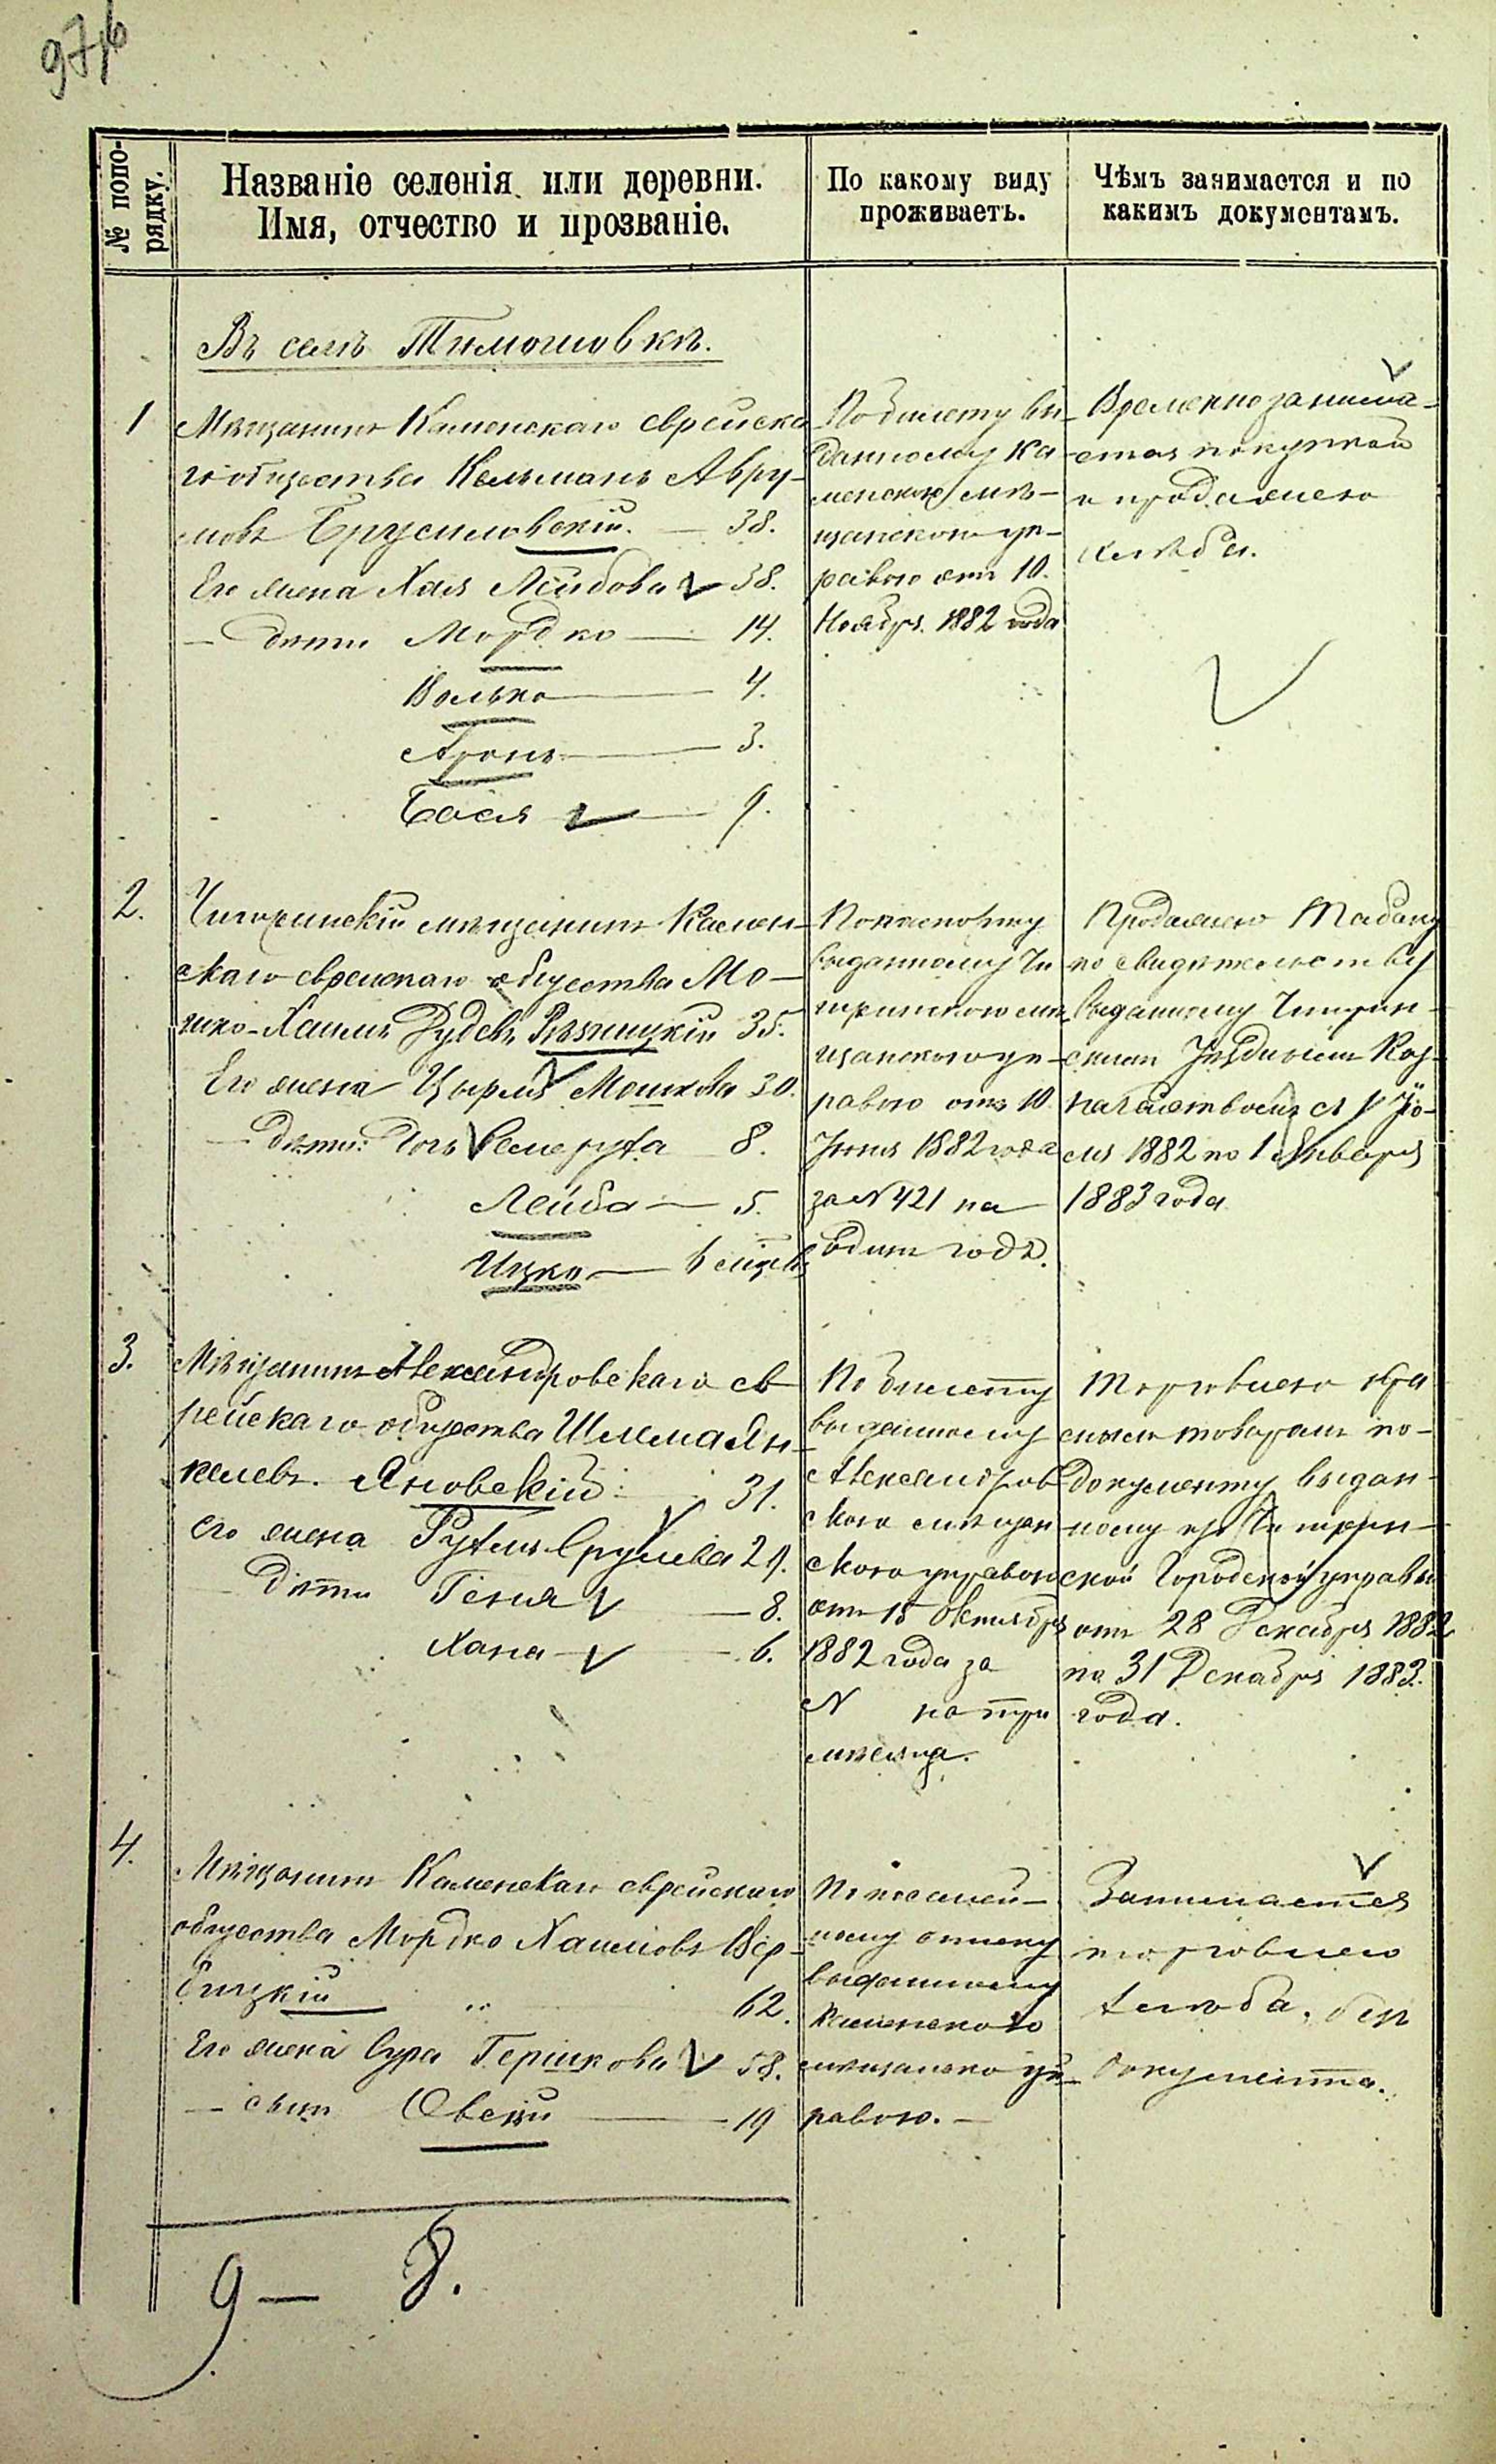 97/6
№ попо-
рядку.
Названіе селенія или деревни.
Имя, отчество и прозваніе.
По какому виду
проживаетъ.
Чѣмъ занимается и по
какимъ документамъ.
Въ селѣ Тимошовкѣ.
1
Мѣщанинъ Каменскаго еврейска
го общества Кельманъ Авру-
мовъ Брусиловскій. — 38.
Его жена Хая Лейбова 38.
— дѣти Мордко — 14.
Волько — 4.
Аронъ — 3.
Бася — 9.
По билету вы-
данному Ка
менскою мѣ-
щанскою уп-
равою отъ 10.
Ноябр. 1882 года
Временно занима-
ется покупкой
и продажею
хлѣба.
2.
Чигиринскій мѣщанинъ Камен-
скаго еврейскаго общества Мо-
шко-Хаимъ Дудевъ Рѣзницкій 35.
Его жена Цырля Мошкова 30.
— дѣти: дочь 8.
Лейба — 5.
Ицко — 6 мѣс
По паспорту
выданному Чи
гиринскою мѣ
щанскою уп-
равою отъ 10
Іюня 1882 года
за № 421 на
одинъ годъ.
Продажею табаку
по свидѣтельству
выданному Чигирин-
скимъ Уѣзднымъ Каз-
начействомъ съ 1 Ію-
ля 1882 по 1 Января
1883 года
3.
Мѣщанинъ Александровскаго ев
рейскаго общества Шлема Ян-
келевъ. Яновскій 31.
его жена Рухль Срулева 29.
— Дѣти Геня — 8.
Хана — 6.
По билету
выданному
Александров
скою мѣщан
скою управою
отъ 15 Октября
1882 года за
№ на три
мѣсяца.
Торговлею кра
снымъ товаромъ по-
документу выдан-
ному изъ Чигирин-
ской Городской управы
отъ 28 Декабря 1882
по 31 Декабря 1883.
года.
4.
Мѣщанинъ Каменскаго еврейскаго
общества Мордко Хаимовъ Вер-
бицкій 62.
Его жена Сура Гершкова 58.
— сынъ Овсей — 19
По посемей-
ному списку
выданному
Каменскою
мѣщанско уп-
равою. —
Занимается
торговлею
хлѣба, безъ
документа.
9 — 8.